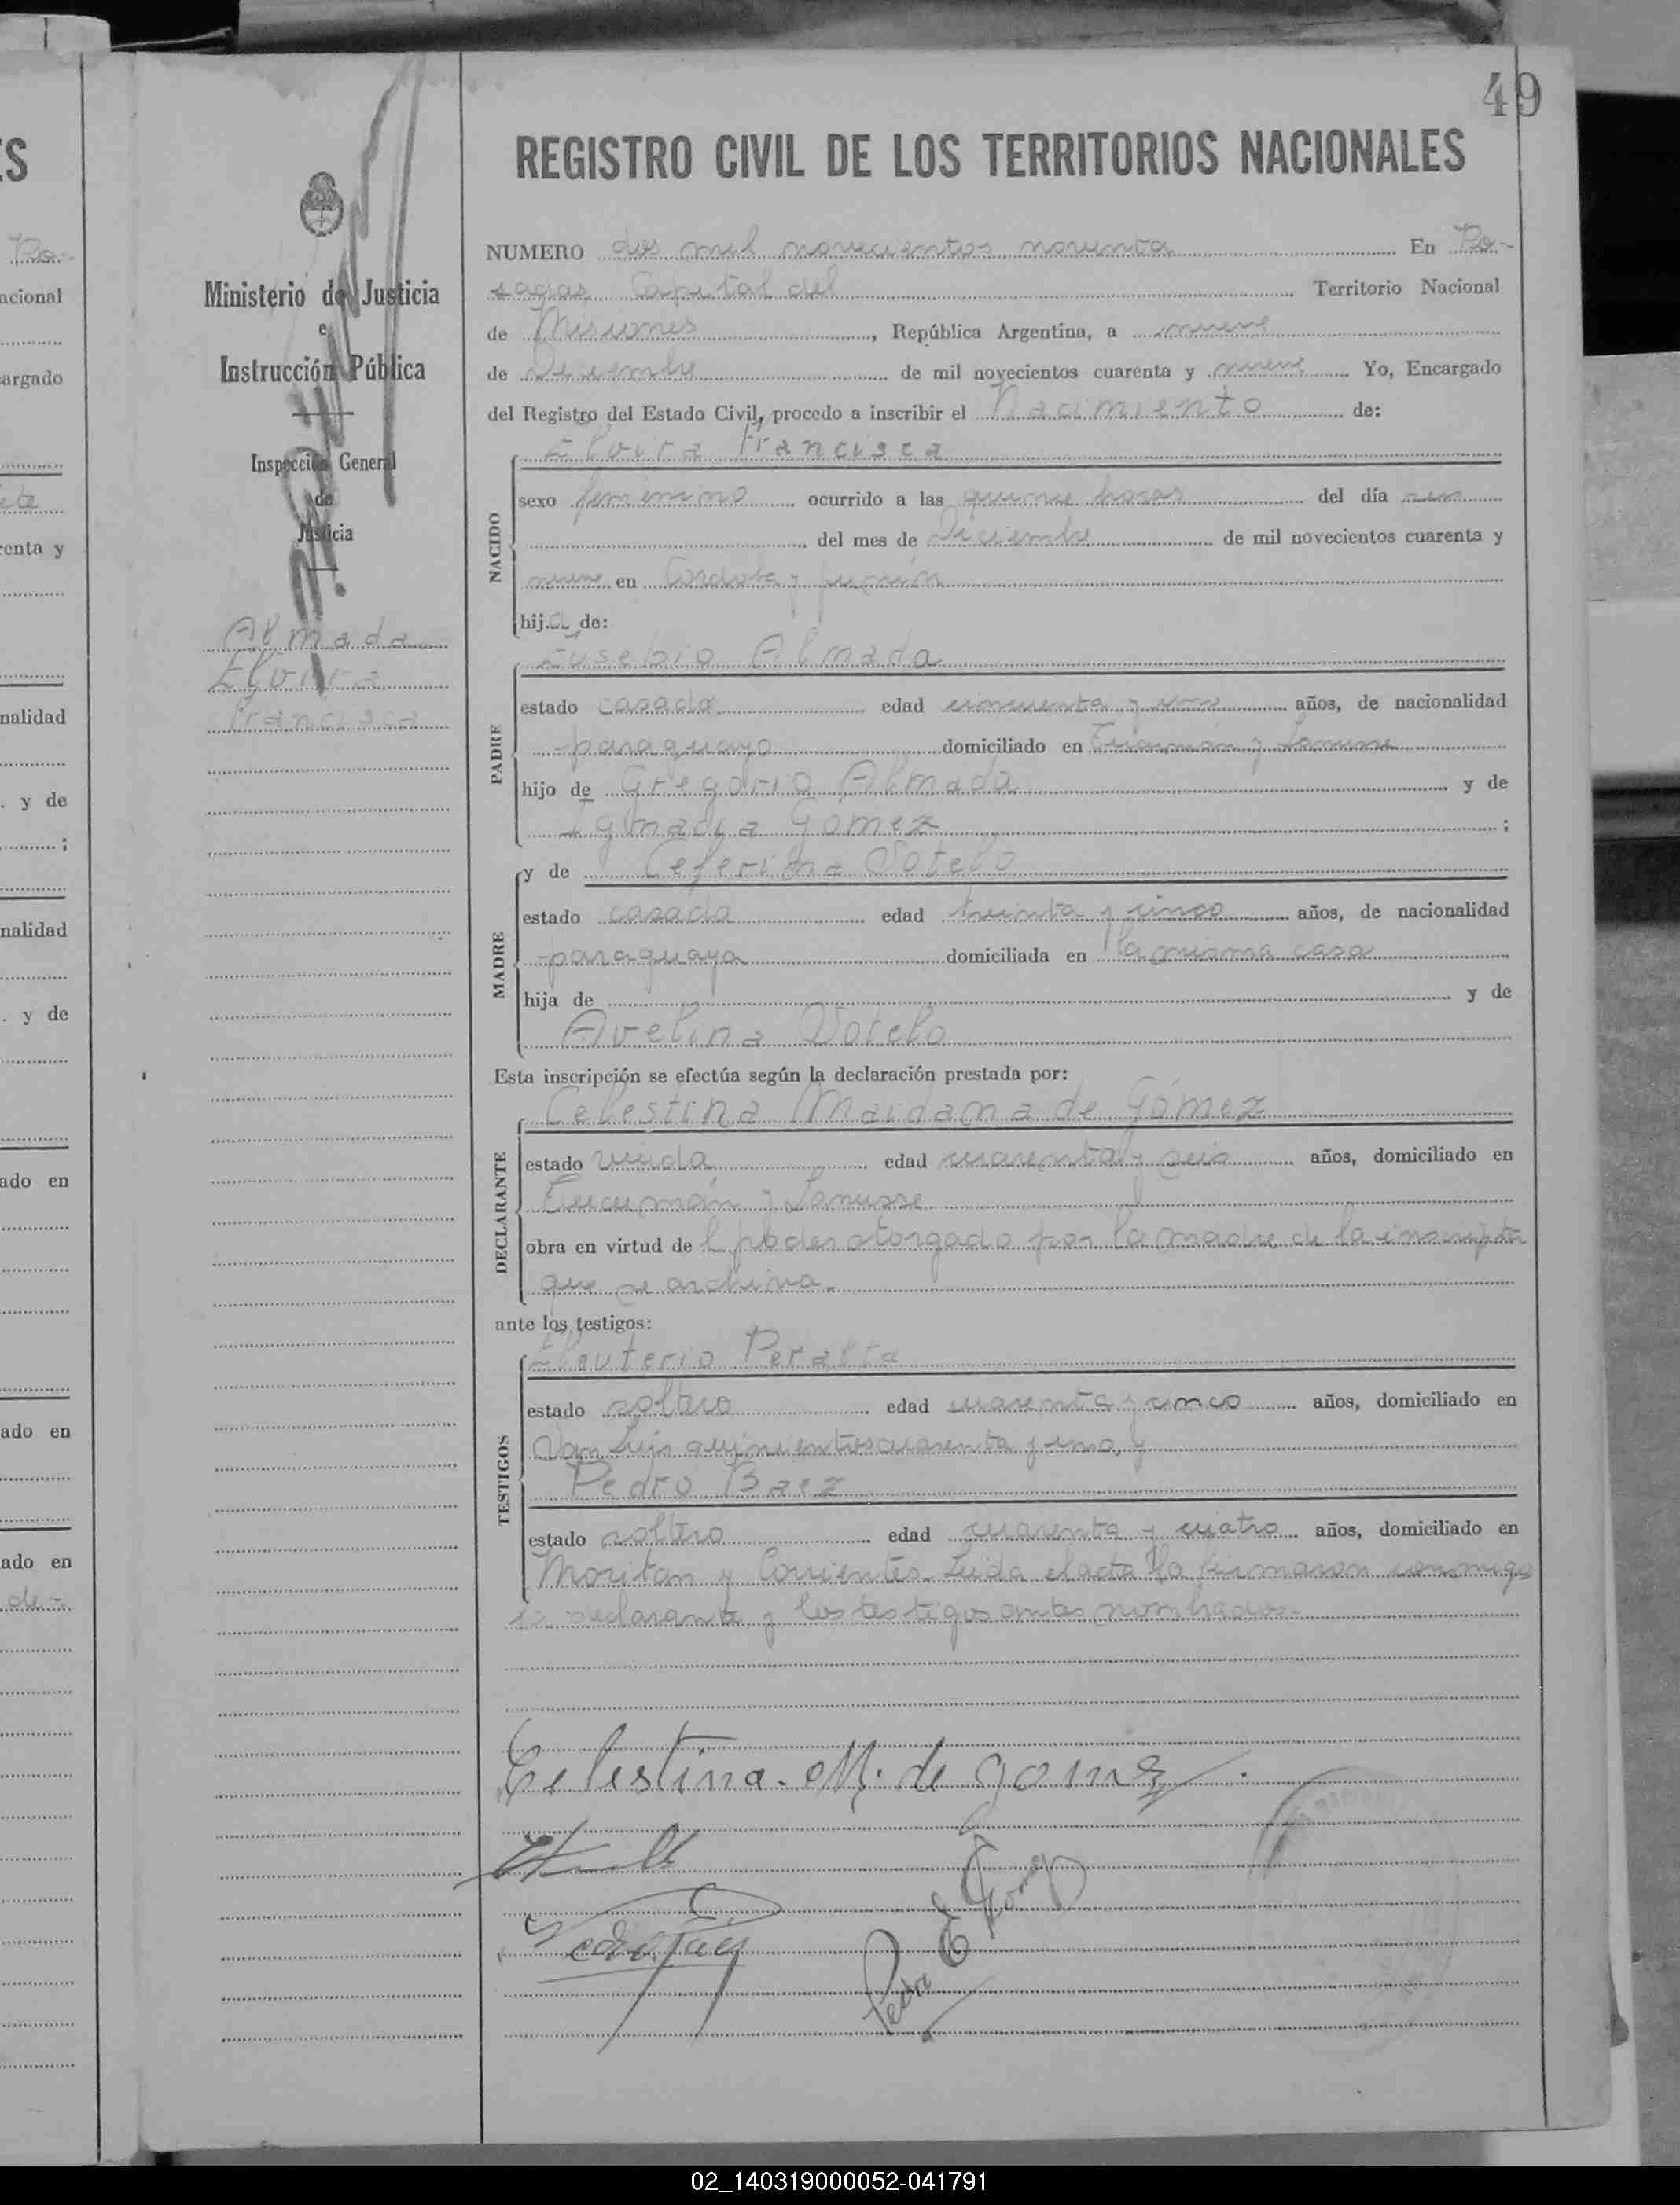 49
REGISTRO CIVIL DE LOS TERRITORIOS NACIONALES
Ministerio de Justicia
e
Instrucción Pública
Inspección General
de
Justicia
Almada
Elvira
Francisca
NUMERO dos mil novecientos noventa En Po-
sadas Capital del Territorio Nacional
de Misiones, República Argentina, a nueve
de Diciembre de mil novecientos cuarenta y nueve Yo, Encargado
del Registro del Estado Civil, procedo a inscribir el Nacimiento de:
Elvira Francisca
NACIDO
sexo femenino ocurrido a las quince horas del día seis
del mes de Diciembre de mil novecientos cuarenta y
nueve en Córdoba y Junín
hija de:
Eusebio Almada
PADRE
estado casado edad cincuenta y uno años, de nacionalidad
paraguayo domiciliado en Tucumán y Lanusse
hijo de Gregorio Almada y de
Ignacia Gómez ;
y de Ceferina Sotelo
MADRE
estado casada edad treinta y cinco años, de nacionalidad
paraguaya domiciliada en la misma casa
hija de y de
Avelina Sotelo
Esta inscripción se efectúa según la declaración prestada por:
Celestina Maidana de Gómez
DECLARANTE
estado viuda edad cuarenta y seis años, domiciliado en
Tucumán y Lanusse
obra en virtud de l poder otorgado por la madre de la inscripta
que se archiva.
ante los testigos:
Eleuterio Peralta
TESTIGOS
estado soltero edad cuarenta y cinco años, domiciliado en
San Luis quinientos cuarenta y uno, y
Pedro Baez
estado soltero edad cuarenta y cuatro años, domiciliado en
Moritan y Corrientes. Leída el acta la firmaron conmigo
la declarante y los testigos antes nombrados.
Celestina. M. de gomez.
Pedro Baez
Pedro E Gomez
02_140319000052-041791